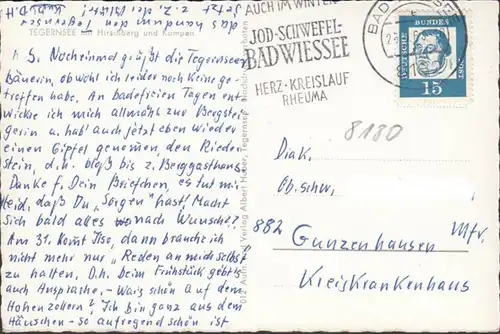 TEGERNSEE mit Hirschberg und Kampen.
L. S. Nocheinmal grüßt die Tegernseer
Bäuerin, obwohl ich leider noch keine ge-
troffen habe. An badefreien Tagen ent-
wickle ich mich allmählich zur Bergstei-
gerin u. hab' auch jetzt eben wieder
einen Gipfel genommen, den Rieder-
stein, d.h. bloß bis z. Berggasthaus.
Danke f. Dein Briefchen, es tut mir
leid, daß Du „Sorgen" hast! Macht
sich bald alles nach Wunsch?
Am 31. kommt Ilse, dann brauche ich
nicht mehr nur „Reden an mich selbst"
zu halten. D.h. beim Frühstück gebts
auch Ansprache. - Wars schön auf dem
Hohenzollern? Ich bin ganz aus dem
Häuschen - so aufregend schön ist
Verlag Albert Huber, Tegernsee
AUCH IM WINTER
JOD-SCHWEFEL-
BAD WIESSEE
HERZ-KREISLAUF
RHEUMA
BAD
DEUTSCHE BUNDESPOST
15
8180
Diak.
Ob.schw.
882 Gunzenhausen Mfr.
Kreiskrankenhaus